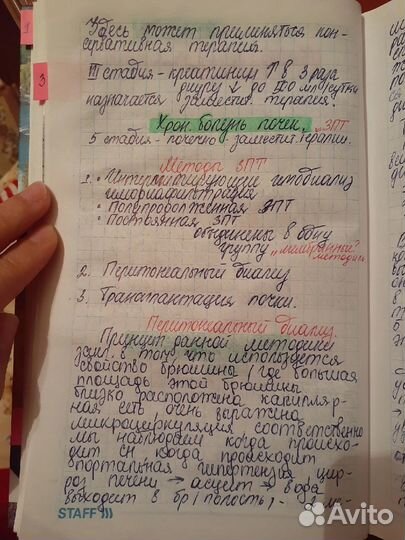 Здесь может применяться кон-
сервативная терапия.
III стадия - креатинин ↑ в 3 раза
диурез ↓ до 100 мл/сутки
назначается заместит. терапия.
Хрон. болезнь почек. ЗПТ
5 стадия - почечно заместит. терапии.
Методы ЗПТ
1. • Интермиттирующие гемодиализ
гемодиафильтрация
• Полупродолженная ЗПТ
• Постоянная ЗПТ
объединены в одну
группу „мембранные"
методики
2. Перитонеальный диализ
3. Трансплантация почки.
Перитонеальный диализ.
Принцип данной методики
закл. в том, что используется
свойство брюшины, где большая
площадь этой брюшины
близко расположена капилляр-
ная сеть, очень заражена
микроциркуляция соответственно
мы наблюдаем когда происхо-
дит сн когда происходит
портальная гипертензия цир-
роз печени → асцит → вода
выходит в бр/полость,
STAFF
3
1
Avito